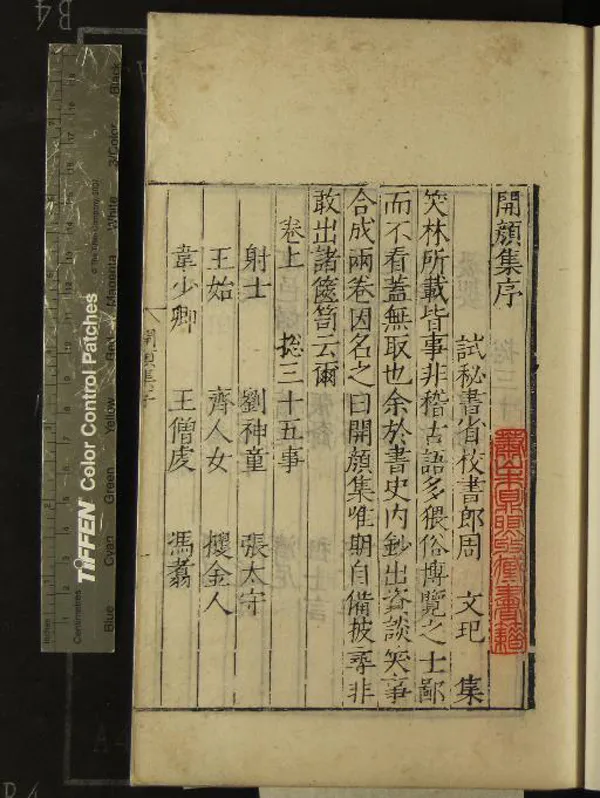 開顏集序
試秘書省校書郎周 文玘 集
笑林所載皆事非稽古語多猥俗博覽之士鄙
而不看蓋無取也余於書史內鈔出資談笑事
合成兩卷因名之曰開顏集唯期自備披尋非
敢出諸篋笥云爾
卷上 捴三十五事
射士 劉神童 張太守
王始 齊人女 攫金人
韋少卿 王僧虔 馮翥
開顏集序
蕭山朱
藏書籍
TIFFEN Color Control Patches
© The Tiffen Company, 2000
Centimetres
Inches
Blue
Cyan
Green
Yellow
Red
Magenta
White
3/Color
Black
B4
A4